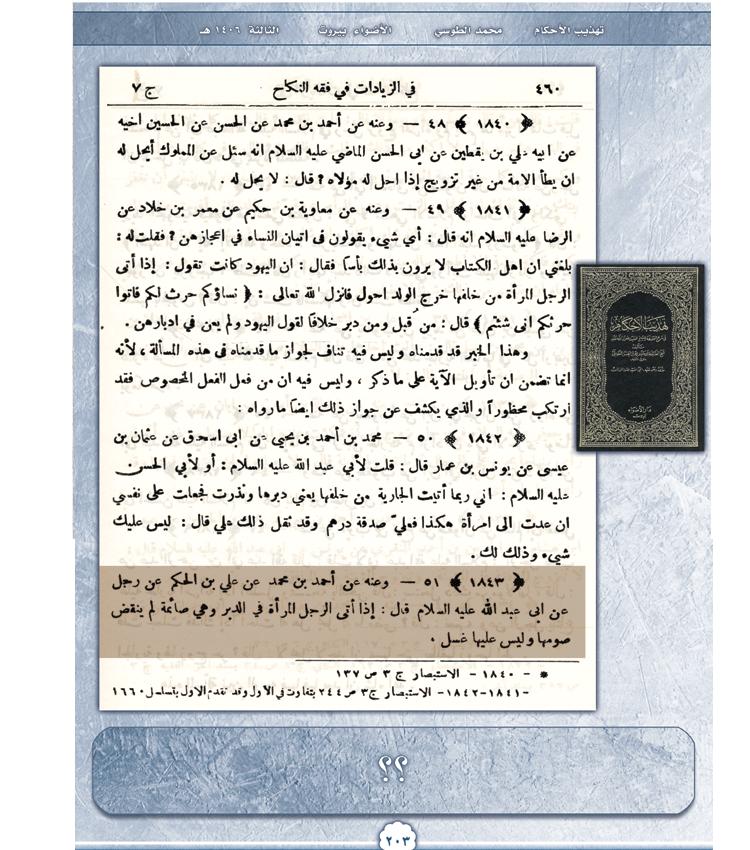 تهذيب الأحكام محمد الطوسي الأضواء بيروت الثالثة ١٤٠٦ هـ
٤٦٠ في الزيادات في فقه النكاح ج ٧
﴿ ١٨٤٠ ﴾ ٤٨ — وعنه عن أحمد بن محمد عن الحسن عن الحسين اخيه
عن ابيه علي بن يقطين عن ابى الحسن الماضي عليه السلام انه سئل عن المملوك أيحل له
ان يطأ الامة من غير تزويج إذا احل له مولاه ؟ قال : لا يحل له .
﴿ ١٨٤١ ﴾ ٤٩ — وعنه عن معاوية بن حكيم عن معمر بن خلاد عن
الرضا عليه السلام انه قال : أي شيء يقولون فى اتيان النساء في اعجازهن ؟ فقلت له :
بلغني ان اهل الكتاب لا يرون بذلك بأساً فقال : ان اليهود كانت تقول : إذا أتى
الرجل المرأة من خلفها خرج الولد احول فانزل الله تعالى : ﴿ نساؤكم حرث لكم فاتوا
حرثكم انى شئتم ﴾ قال : من قبل ومن دبر خلافاً لقول اليهود ولم يعن في ادبارهن .
وهذا الخبر قد قدمناه وليس فيه تناف لجواز ما قدمناه فى هذه المسألة ، لأنه
انما تضمن ان تأويل الآية على ما ذكر ، وليس فيه ان من فعل الفعل المخصوص فقد
ارتكب محظوراً والذي يكشف عن جواز ذلك ايضاً ما رواه :
﴿ ١٨٤٢ ﴾ ٥٠ — محمد بن أحمد بن يحيى عن ابى اسحق عن عثمان بن
عيسى عن يونس بن عمار قال : قلت لأبي عبد الله عليه السلام : أو لأبي الحسن
عليه السلام : اني ربما أتيت الجارية من خلفها يعني دبرها ونذرت فجعلت على نفسي
ان عدت الى امرأة هكذا فعليّ صدقة درهم وقد ثقل ذلك علي قال : ليس عليك
شيء وذلك لك .
﴿ ١٨٤٣ ﴾ ٥١ — وعنه عن أحمد بن محمد عن علي بن الحكم عن رجل
عن ابى عبد الله عليه السلام قال : إذا أتى الرجل المرأة في الدبر وهي صائمة لم ينقض
صومها وليس عليها غسل .
* - ١٨٤٠ - الاستبصار ج ٣ ص ١٣٧
- ١٨٤١-١٨٤٢- الاستبصار ج ٣ ص ٢٤٤ بتفاوت في الأول وقد تقدم الاول بتسلسل ١٦٦٠
تهذيب الأحكام
؟؟
٢٠٣